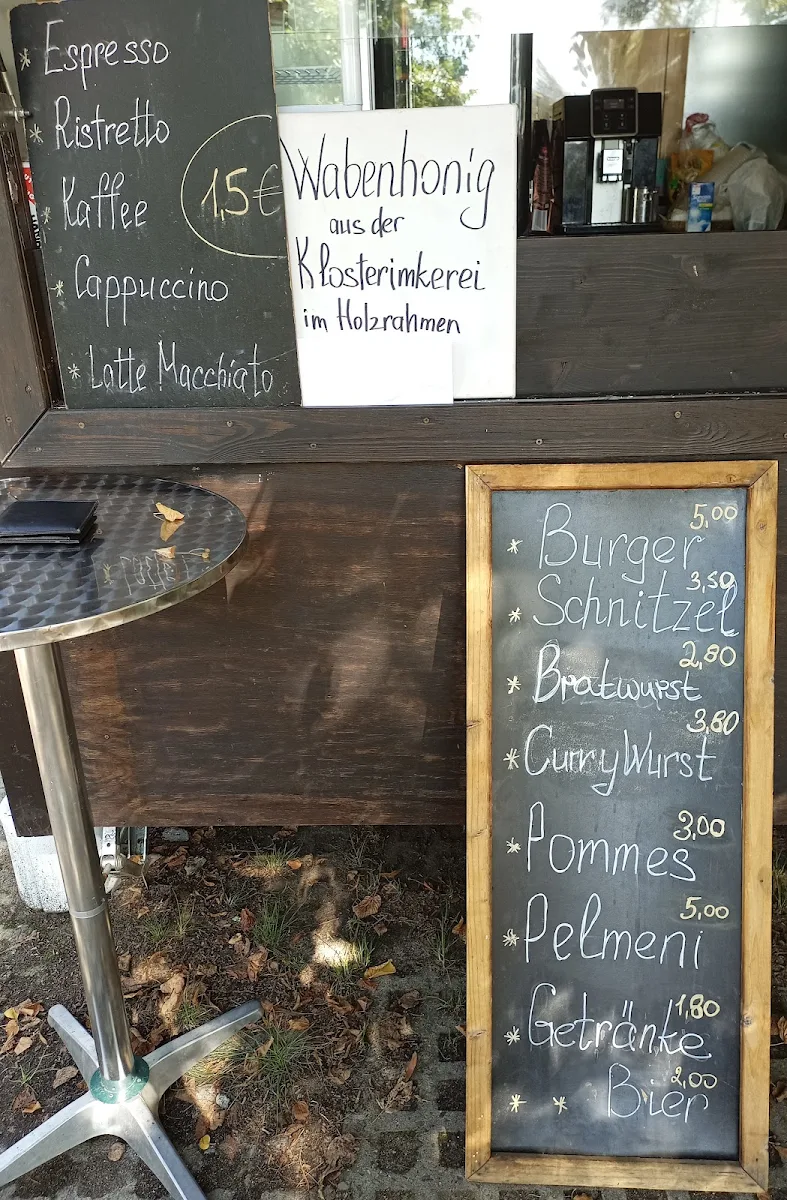 * Espresso
* Ristretto
* Kaffee
1,5 €
* Cappuccino
* Latte Macchiato
Wabenhonig
aus der
Klosterimkerei
im Holzrahmen
5,00
* Burger
3,50
* Schnitzel
2,80
* Bratwurst
3,80
* CurryWurst
3,00
* Pommes
5,00
* Pelmeni
1,80
* Getränke
2,00
* * Bier